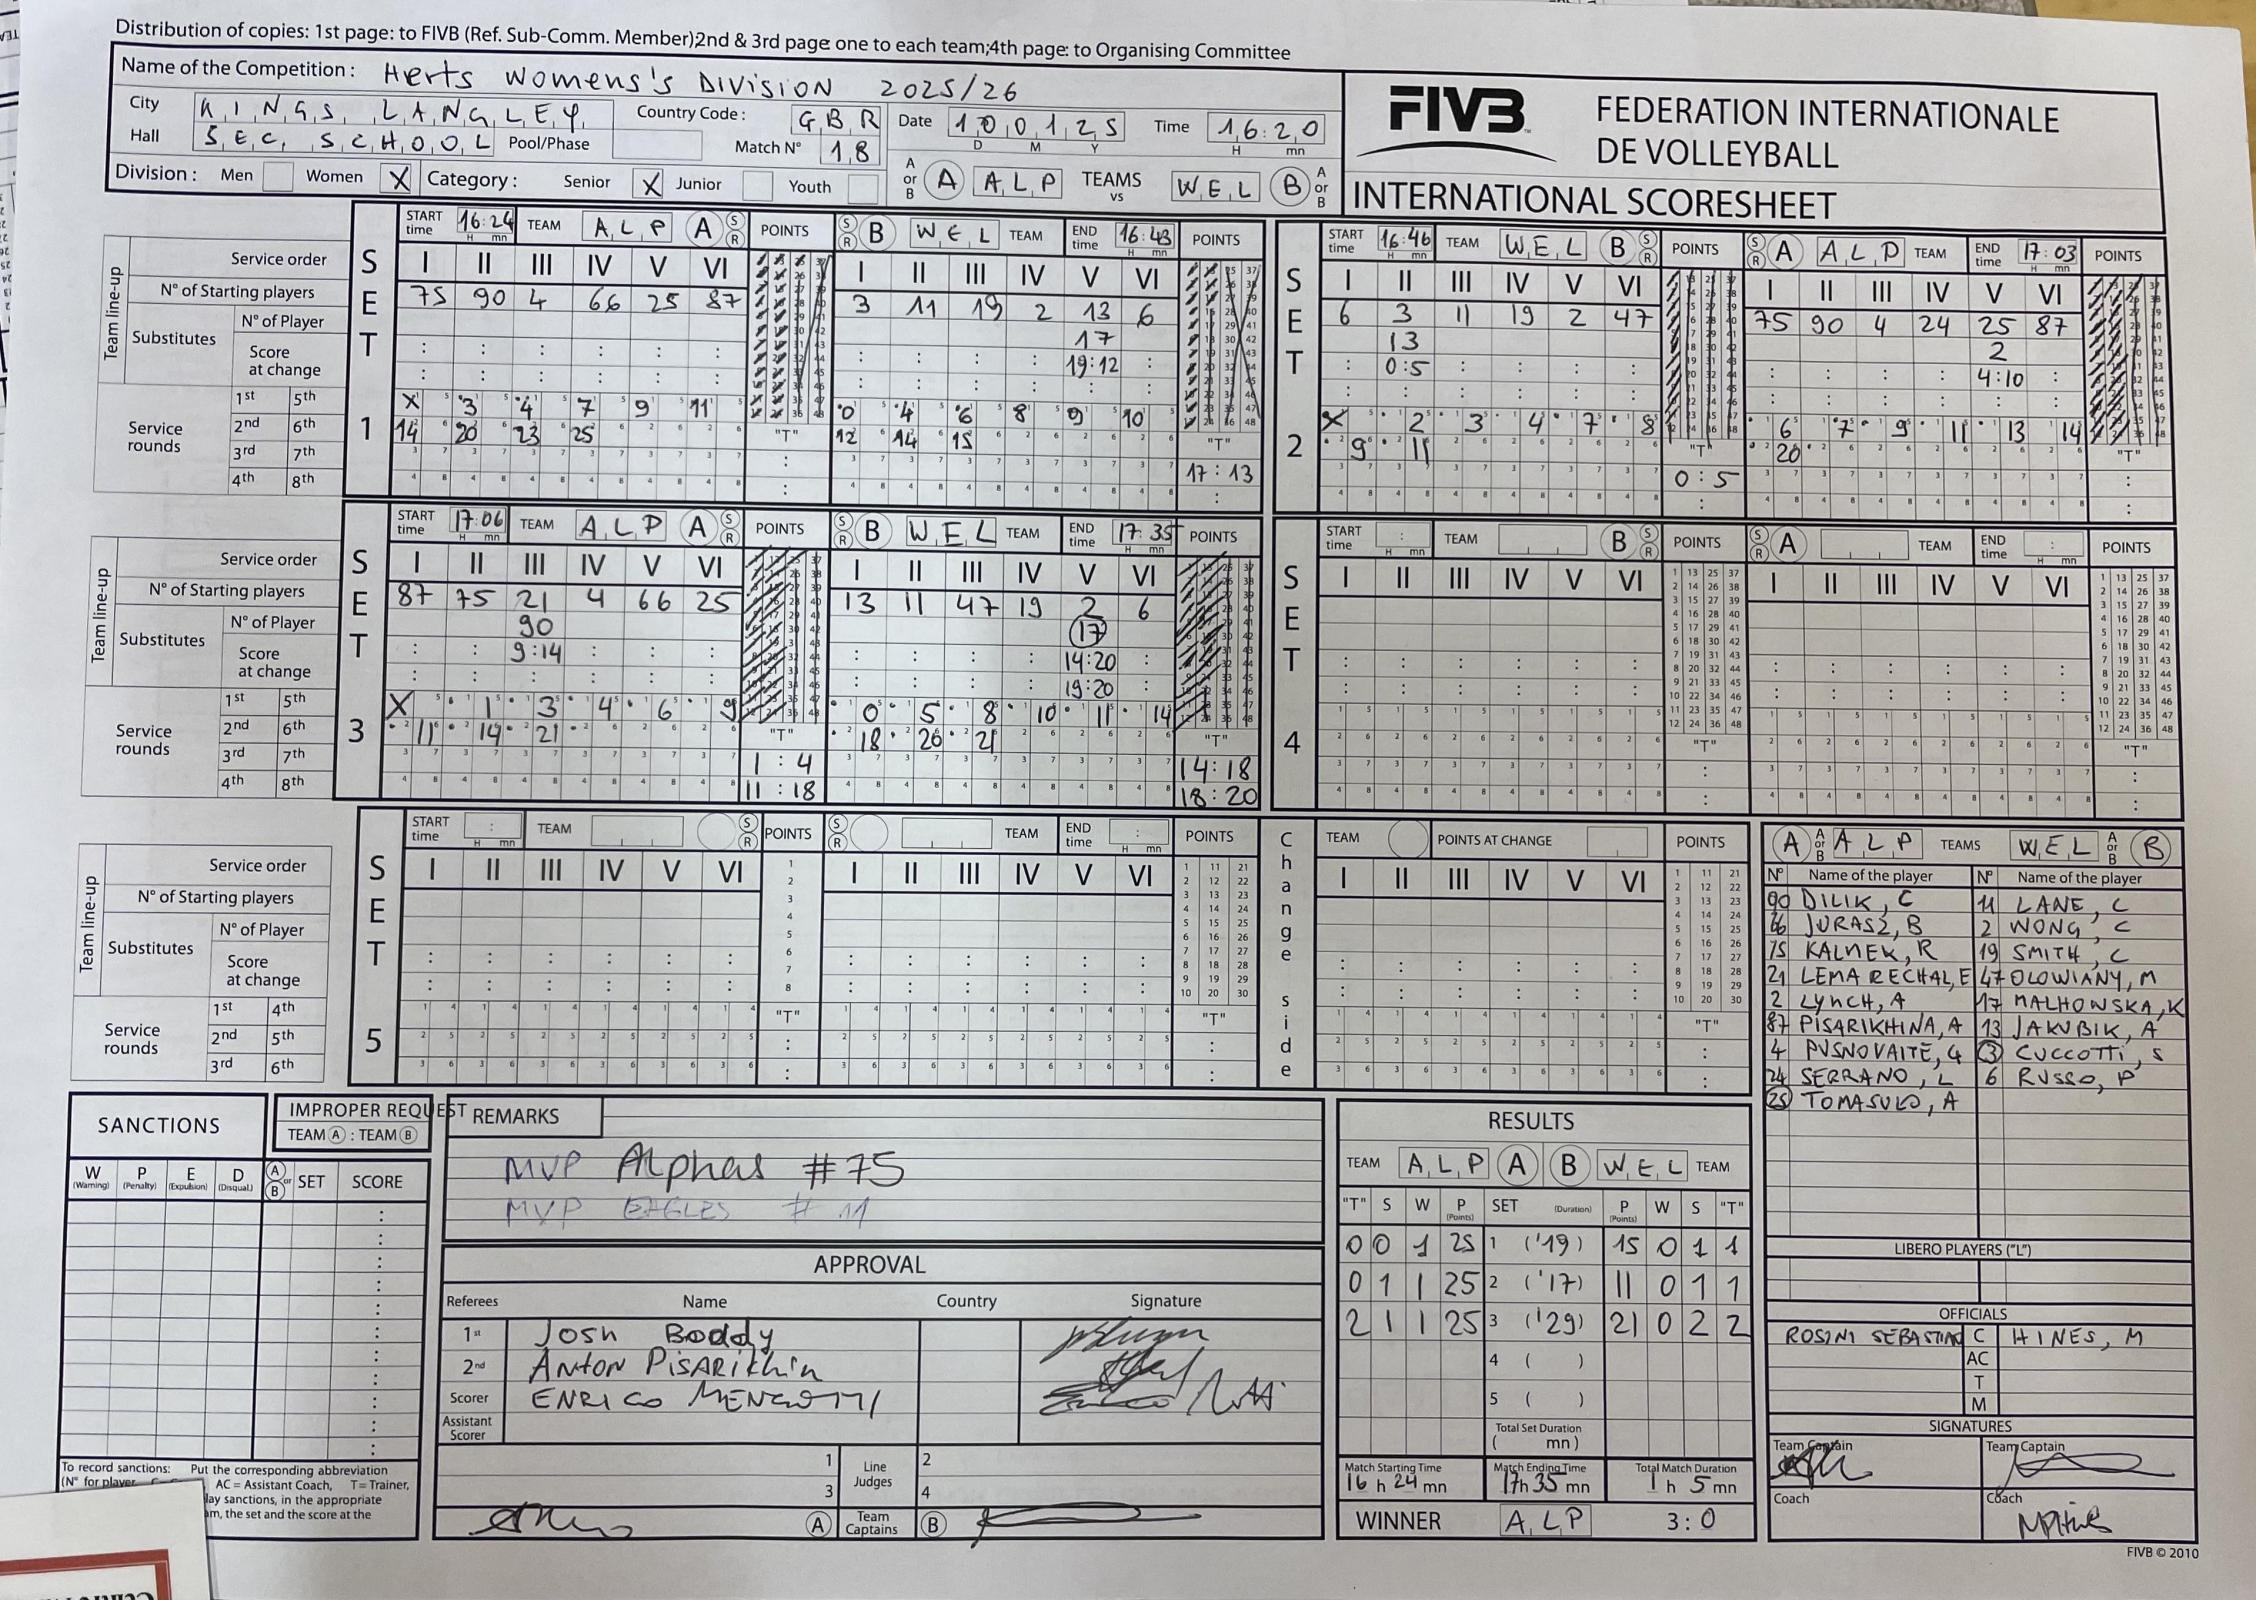 Distribution of copies: 1st page: to FIVB (Ref. Sub-Comm. Member)2nd & 3rd page one to each team;4th page: to Organising Committee
Name of the Competition : Herts Womens's Division 2025/26
City KINGS LANGLEY Country Code : GBR Date 100125 Time 16:20
Hall SEC SCHOOL Pool/Phase Match N° 18
Division : Men Women X Category : Senior X Junior Youth A or B A ALP TEAMS vs WEL B A or B
FIVB FEDERATION INTERNATIONALE
DE VOLLEYBALL
INTERNATIONAL SCORESHEET
SET 1
START time 16:24 TEAM ALP A S R POINTS S R B WEL TEAM END time 16:43 POINTS
Service order I II III IV V VI I II III IV V VI
N° of Starting players 75 90 4 66 25 87 3 11 19 2 13 6
Team line-up Substitutes N° of Player 17
Score at change 19:12
Service rounds
1st 5th X 3 4 7 9 11 0 4 6 8 9 10
2nd 6th 14 20 23 25 12 14 15
3rd 7th
4th 8th
"T" "T" 17:13
SET 2
START time 16:46 TEAM WEL B S R POINTS S R A ALP TEAM END time 17:03 POINTS
I II III IV V VI I II III IV V VI
6 3 11 19 2 47 75 90 4 24 25 87
13 2
0:5 4:10
X 2 3 4 7 8 6 7 9 11 13 14
9 11 20
"T" 0:5 "T"
SET 3
START time 17:06 TEAM ALP A S R POINTS S R B WEL TEAM END time 17:35 POINTS
Service order I II III IV V VI I II III IV V VI
N° of Starting players 87 75 21 4 66 25 13 11 47 19 2 6
Team line-up Substitutes N° of Player 90 17
Score at change 9:14 14:20
19:20
Service rounds
1st 5th X 1 3 4 6 9 0 5 8 10 11 14
2nd 6th 11 14 21 18 20 21
3rd 7th
4th 8th
"T" 1:4 11:18 "T" 14:18 18:20
SET 4
START time TEAM B S R POINTS S R A TEAM END time POINTS
I II III IV V VI I II III IV V VI
"T" "T"
SET 5
START time TEAM S R POINTS S R TEAM END time POINTS
Service order I II III IV V VI I II III IV V VI
N° of Starting players
Team line-up Substitutes N° of Player
Score at change
Service rounds
1st 4th
2nd 5th
3rd 6th
"T" "T"
Change side
TEAM POINTS AT CHANGE POINTS
I II III IV V VI
"T"
A A or B ALP TEAMS WEL A or B B
N° Name of the player N° Name of the player
90 DILIK, C 11 LANE, C
66 JURASZ, B 2 WONG, C
75 KALNEK, R 19 SMITH, C
21 LEMA RECHAL, E 47 OLOWIANY, M
2 LYNCH, A 17 MALHOWSKA, K
87 PISARIKHINA, A 13 JAKUBIK, A
4 PUSNOVAITE, G 3 CUCCOTTI, S
24 SERRANO, L 6 RUSSO, P
25 TOMASULO, A
LIBERO PLAYERS ("L")
OFFICIALS
ROSINI SEBASTIAN C HINES, M
AC
T
M
SIGNATURES
Team Captain Team Captain
Coach Coach
SANCTIONS
IMPROPER REQUEST
TEAM A : TEAM B
W (Warning) P (Penalty) E (Expulsion) D (Disqual.) A or B SET SCORE
To record sanctions: Put the corresponding abbreviation
(N° for player AC = Assistant Coach, T= Trainer,
lay sanctions, in the appropriate
am, the set and the score at the
REMARKS
MVP Alphas #75
MVP EAGLES #11
APPROVAL
Referees Name Country Signature
1st Josh Boddy
2nd Anton Pisarikhin
Scorer ENRICO
Assistant Scorer
1 Line Judges 2
3 4
A Team Captains B
RESULTS
TEAM ALP A B WEL TEAM
"T" S W P (Points) SET (Duration) P (Points) W S "T"
0 0 1 25 1 ('19) 15 0 1 1
0 1 1 25 2 ('17) 11 0 1 1
2 1 1 25 3 ('29) 21 0 2 2
4 ( )
5 ( )
Total Set Duration
( mn)
Match Starting Time Match Ending Time Total Match Duration
16 h 24 mn 17h 35 mn 1 h 5 mn
WINNER ALP 3:0
FIVB © 2010